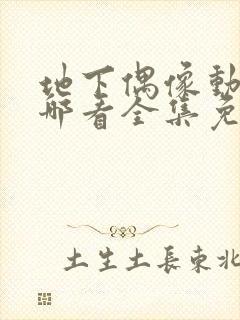 地下偶像動
那看全集免
土生土長東北